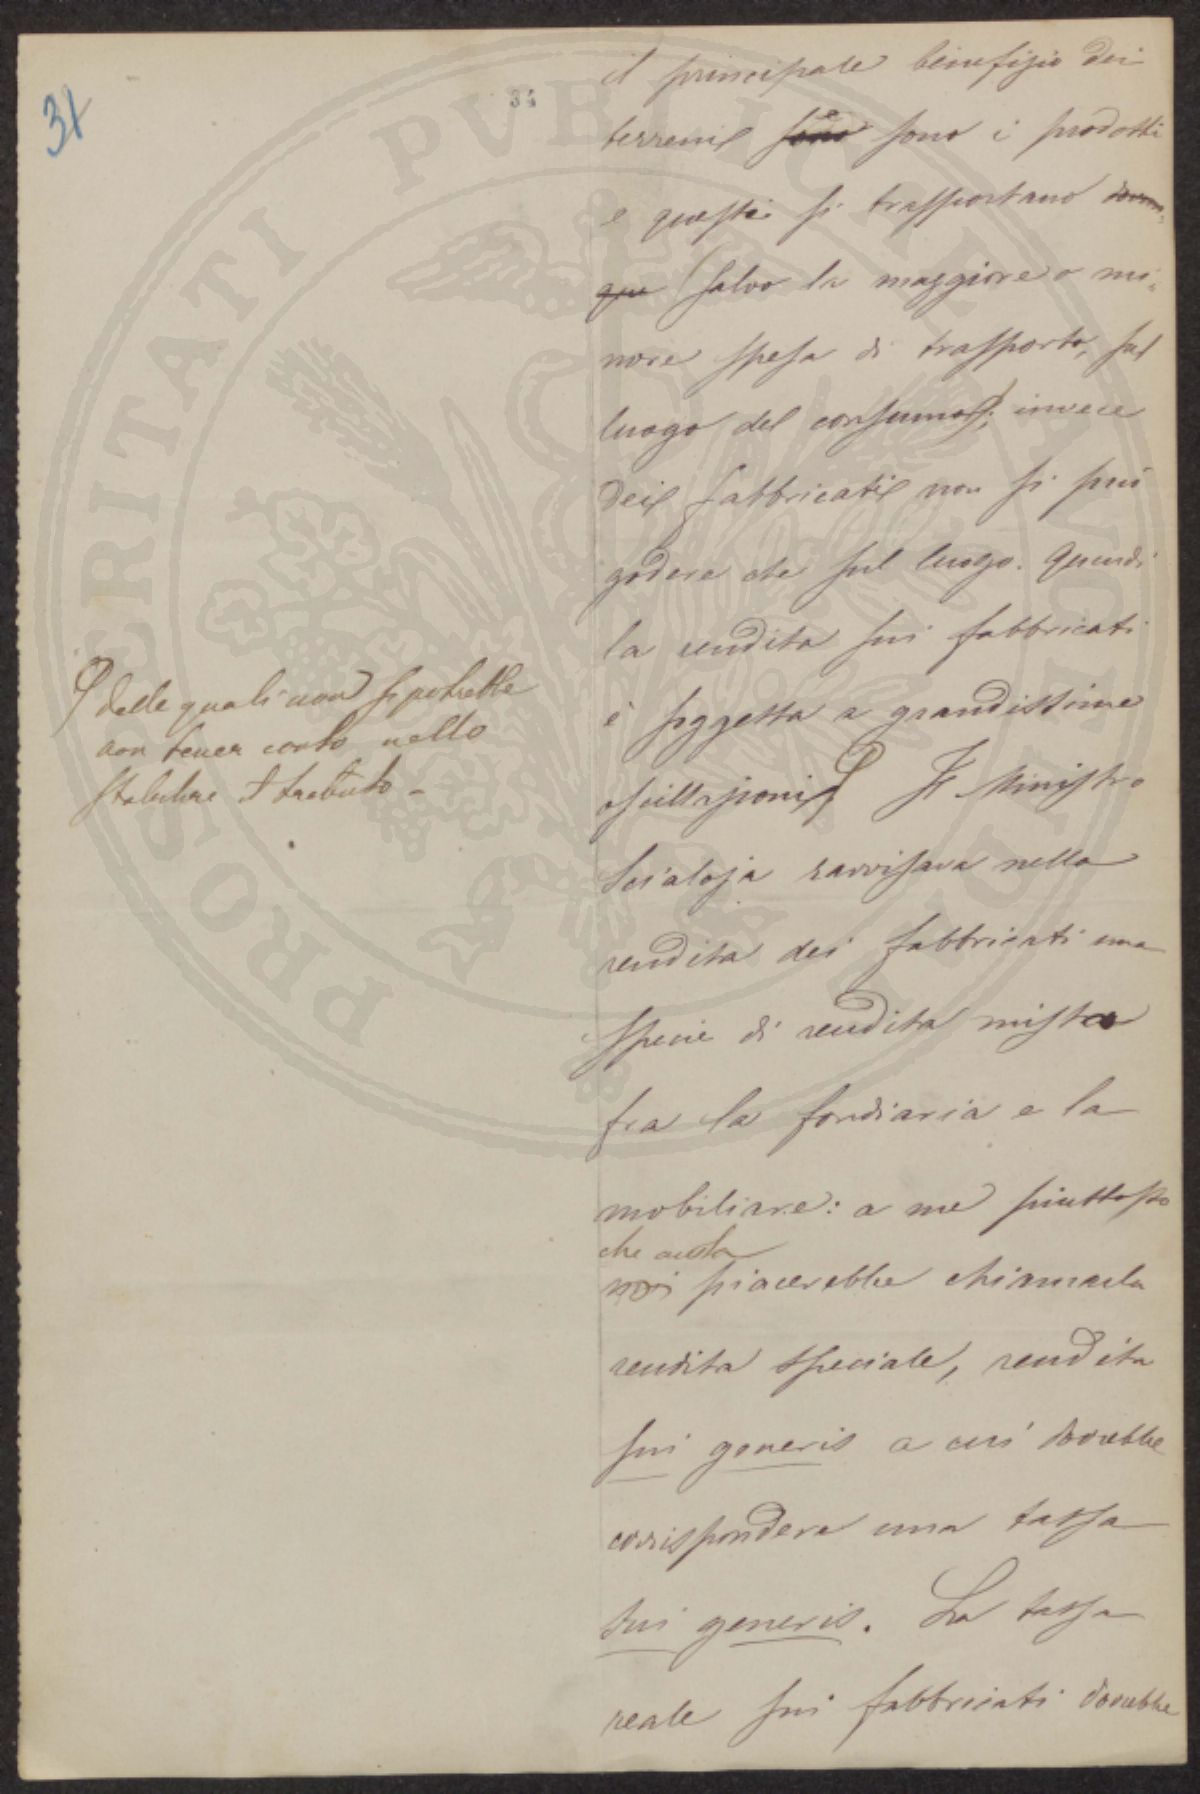 31
34
il principale benefizio dei
terreni sono sono i prodotti
e questi si trasportano dovun-
que (salvo la maggiore o mi-
nore spesa di trasporto, sul
luogo del consumo); invece
dei fabbricati non si può
godere che sul luogo. Quindi
la rendita sui fabbricati
è soggetta a grandissime
oscillazioni Il Ministro
Scialoja ravvisava nella
rendita dei fabbricati una
specie di rendita mista
fra la fondiaria e la
mobiliare: a me piuttosto
che
piacerebbe chiamarla
rendita speciale, rendita
sui generis a cui dovrebbe
corrispondere una tassa
sui generis. La tassa
reale sui fabbricati dovrebbe
delle quali non si potrebbe
non tener conto nello
stabilire il tributo -
PROSPERITATI PVBLICAE